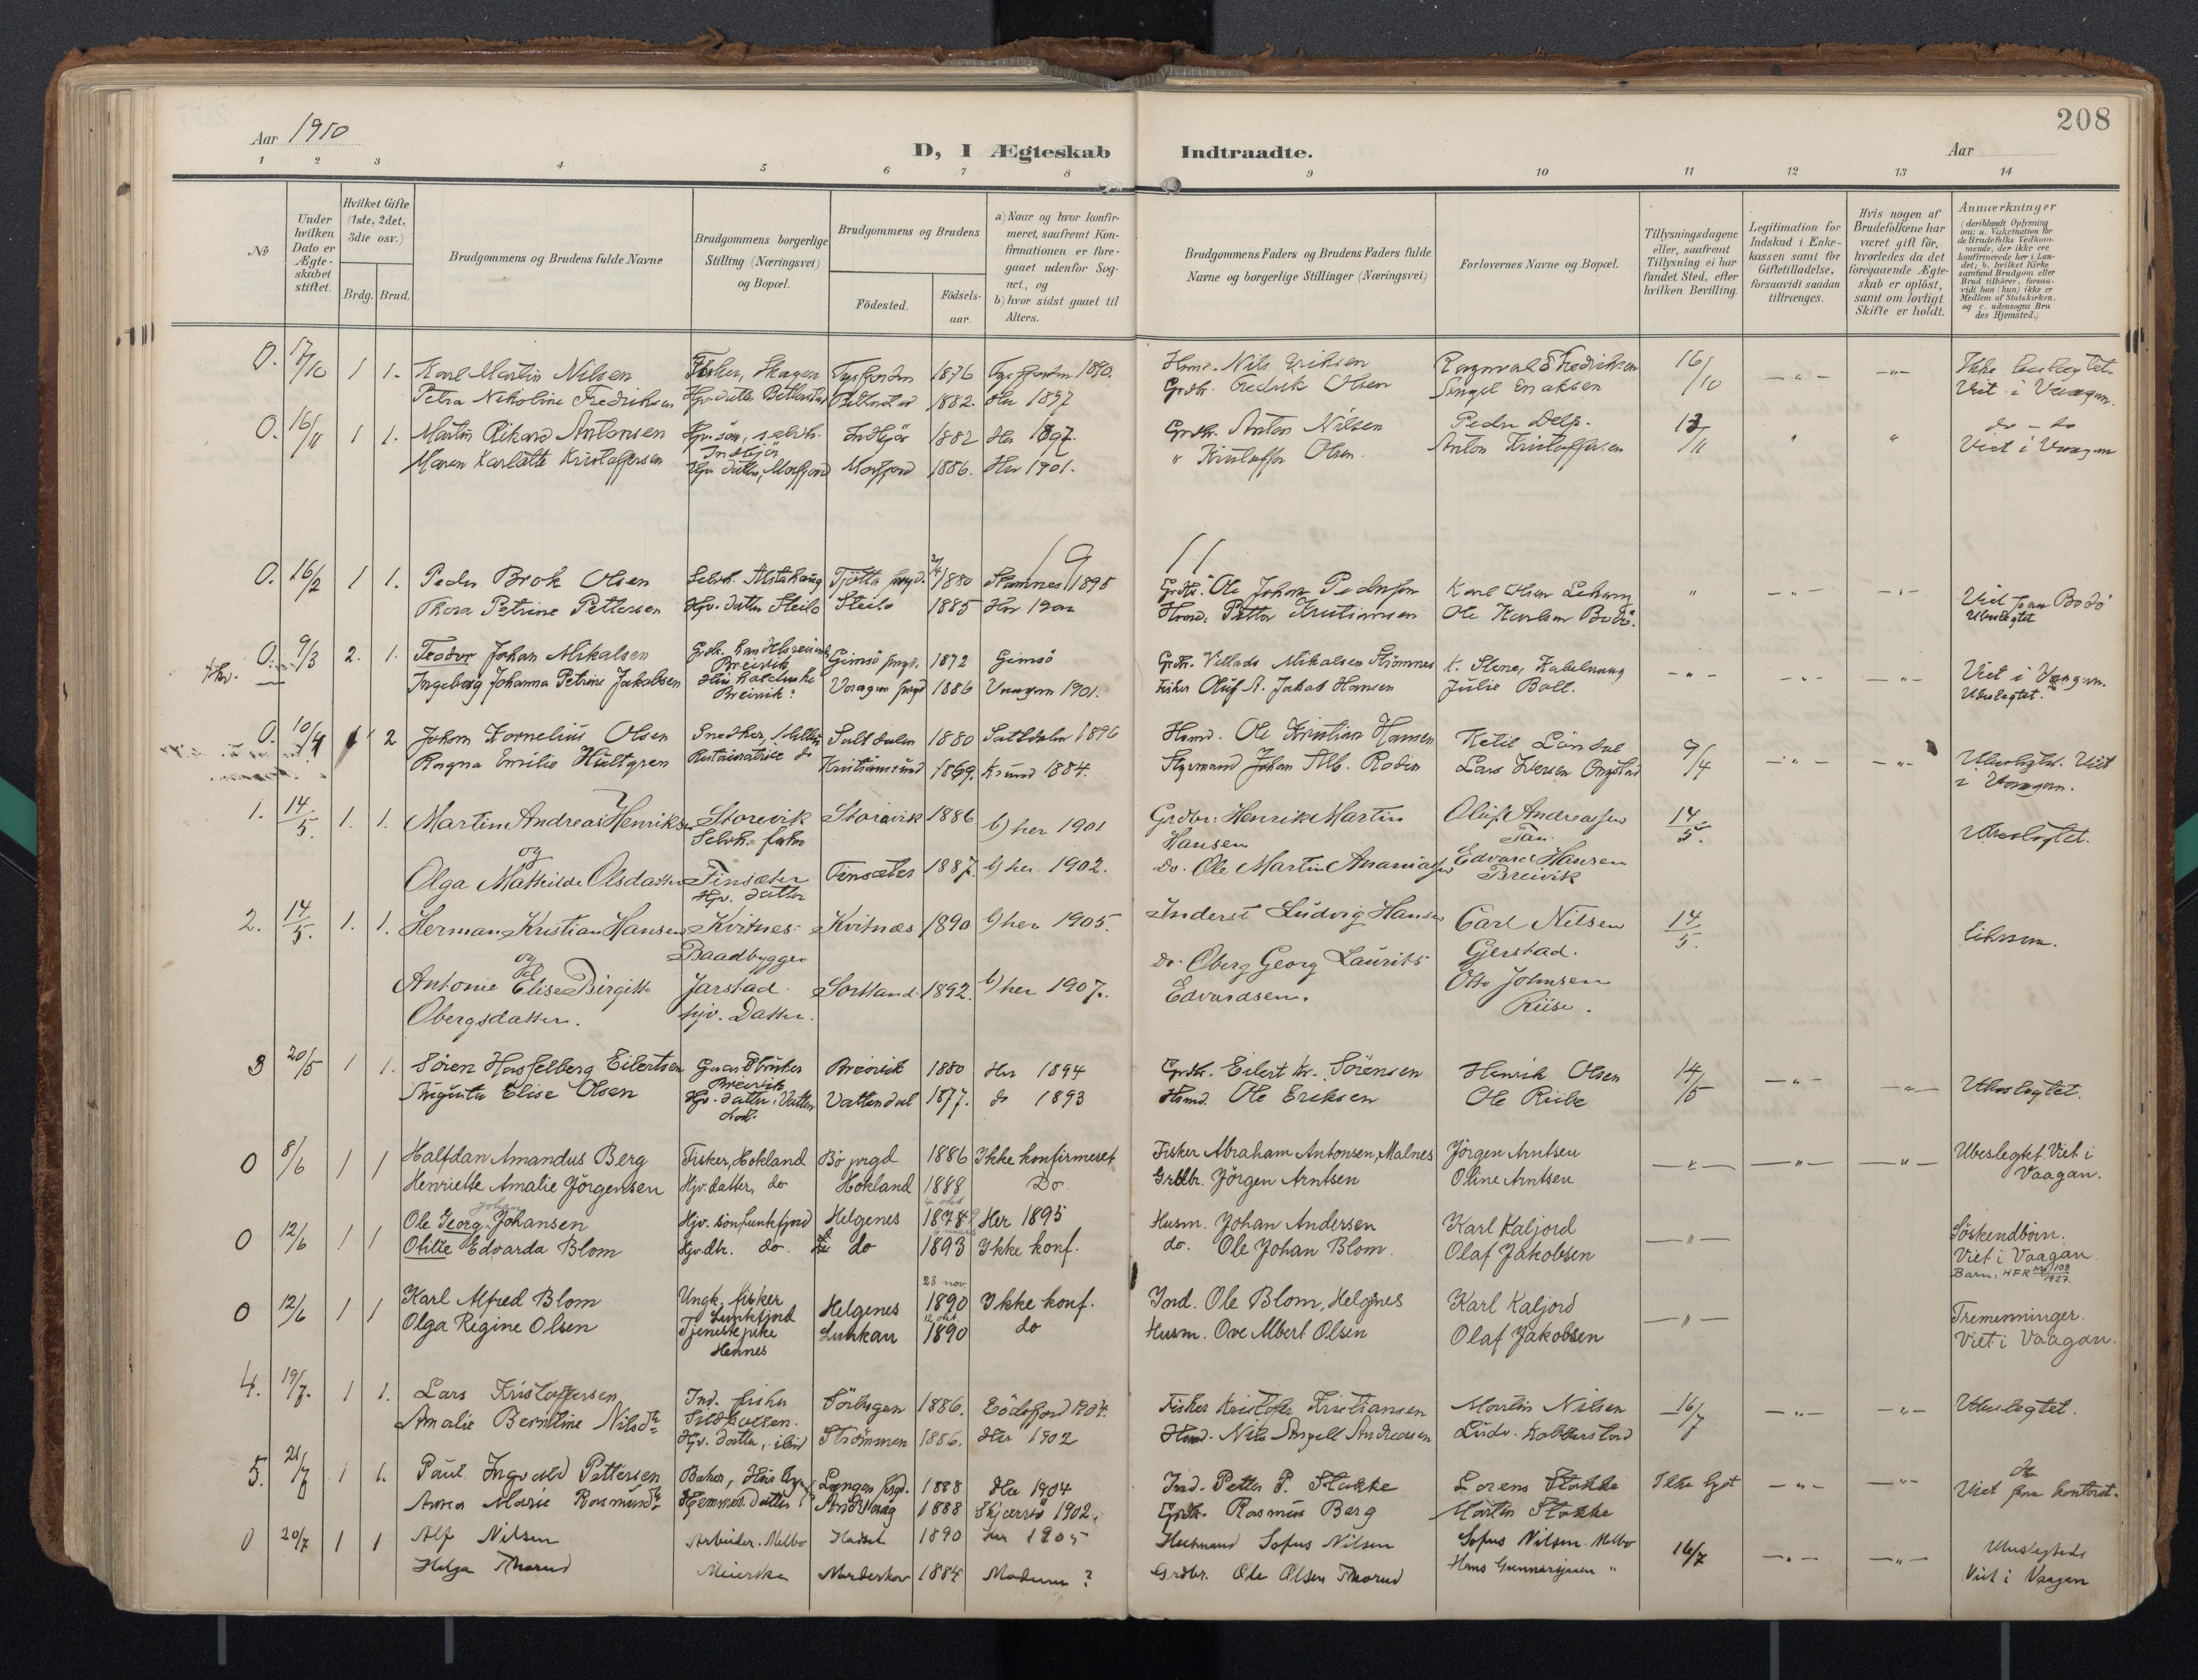 208
Aar 1910
D, I Ægteskab Indtraadte.
Aar
1 2 3 4 5 6 7 8 9 10 11 12 13 14
№
Under hvilken Dato er Ægteskabet stiftet.
Hvilket Gifte (1ste, 2det, 3die osv.)
Brdg. Brud.
Brudgommens og Brudens fulde Navne
Brudgommens borgerlige Stilling (Næringsvei) og Bopæl.
Brudgommens og Brudens
Födested.
Födselsaar.
a) Naar og hvor konfirmeret, saafremt Konfirmationen er foregaaet udenfor Sognet, og
b) hvor sidst gaaet til Alters.
Brudgommens Faders og Brudens Faders fulde Navne og borgerlige Stillinger (Næringsvei)
Forlovernes Navne og Bopæl.
Tillysningsdagene eller, saafremt Tillysning ei har fundet Sted, efter hvilken Bevilling.
Legitimation for Indskud i Enkekassen samt for Giftetilladelse, forsaavidt saadan tiltrænges.
Hvis nogen af Brudefolkene har været gift för, hvorledes da det foregaaende Ægteskab er oplöst, samt om lovligt Skifte er holdt.
Anmærkninger
(deriblandt Oplysning om: a. Vakcination for de Brudefolks Vedkommende, der ikke ere konfirmerede her i Landet; b. hvilket Kirkesamfund Brudgom eller Brud tilhörer, forsaavidt han (hun) ikke er Medlem af Statskirken, og c. udensogns Brudes Hjemsted.)
0. 17/10 1 1. Karl Martin Nilsen Fisker, Skagen Tysfjorden 1876 Tysfjorden 1890. Husm. Nils Eriksen Ragnvald Fredriksen 16/10 Ikke beslegtet.
Petra Nikoline Fredriksen Hjv. datter 1882. Her 1897 Grdbr. Fredrik Olsen Viet i Vaagan.
0. 16/11 1 1. Martin Rikard Antonsen Hjv. sön, selvh. Indhjör 1882 Her 1897. Grdbr. Anton Nilsen Peder Delp. 13/11 do - do
Maren Karlotte Kristoffersen Hjv. datter, Morfjord Morfjord 1886. Her 1901. " Kristoffer Olsen. Anton Kristoffersen Viet i Vaagan
19 11
0. 16/2 1 1. Peder Brok Olsen Selvh. Alstahaug Tjötta prgd. 1880 Stamnes 1895 Grdbr. Ole Johan Pedersen Karl Olsen Viet paa Bodö
Thora Petrine Pettersen Hjv. datter Steilo Steilo 1885 Her 1900 Husmd. Petter Kristiansen Ole Karlsen Bodö. Ubeslegtet
0. 9/3 2. 1. Teodor Johan Mikalsen Breivik Gimsö prgd. 1872 Gimsö Grdbr. Villads Mikalsen Strömnes K. Stene, Kabelvaag Viet i Vaagan.
Ingeborg Johanna Petrine Jakobsen Breivik. Vaagan prgd 1886 Vaagan 1901. Fisker Oluf A. Jakob Hansen Julie Boll. Ubeslegtet.
0. 10/4 1 2 Johan Kornelius Olsen Snedker, Saltdalen 1880 Saltdalen 1896 Husmd. Ole Kristian Hansen Ketil Löndal 9/4 Ubeslegtet. Viet
Ragna Emilie Hultgren do Kristiansund 1869. Krsund 1884. Styrmand Johan Alb. Rodin Lars Iversen i Vaagan.
1. 14/5. 1. 1. Martin Andreas Henriksen Storevik Storevik 1886 b) her 1901 Grdbr. Henrik Martin Oluf Andreassen 14/5. Ubeslegtet.
og Selvh. Hansen
Olga Mathilde Olsdatter Finsæter Finsæter 1887. b) her 1902. do. Ole Martin Ananiassen Edvard Hansen
Hjv. datter Breivik
2. 14/5. 1. 1. Herman Kristian Hansen Kvitnes Kvitnæs 1890 b) her 1905. Inderst Ludvig Hansen Carl Nilsen 14/5.
og Baadbygger Gjerstad.
Antonie Elise Birgitte Jarstad. Sortland. 1892. b) her 1907. do. Oberg Georg Laurits Otto Johnsen
Obergsdatter. hjv. Datter. Edvardsen. Riise.
3 20/5 1 1. Sören Hasselberg Eilertsen Gaardbruker Breivik 1880 Her 1894 Grdbr. Eilert Kr. Sörensen Henrik Olsen 14/5 Ubeslegtet.
Breivik
Augusta Elise Olsen Hjv. datter, Vatten dal. Vattendal 1877. do 1893 Husmd. Ole Eriksen Ole Riibe
0 8/6 1 1 Halfdan Amandus Berg Fisker, Hokland Bö prgd 1886 Ikke konfirmeret Fisker Abraham Antonsen, Malnes Jörgen Arntsen Ubeslegtet. Viet i
Henriette Amalie Jörgensen Hjv. datter, do Hokland 1888 Do. Grdbr. Jörgen Arntsen Oline Arntsen Vaagan.
Johan 4 okt
0 12/6 1 1 Ole Georg Johansen Hjv. sön, Lunkfjord Helgenes 1878 Her 1895 Husm. Johan Andersen Karl Kaljord Söskendbörn.
Otilie Edvarda Blom Hjv. dtr. do. do 1893 Ikke konf. do. Ole Johan Blom. Olaf Jakobsen Viet i Vaagan.
Barn: HFR No 108/1927.
23 nov.
0 12/6 1 1 Karl Alfred Blom Ungk. fisker Helgenes 1890 Ikke konf. Ind. Ole Blom, Helgenes Karl Kaljord Tremenninger.
Lunkfjord 12 okt.
Olga Regine Olsen Tjenestepike Lunkan 1890 do Husm. Ove Albert Olsen Olaf Jakobsen Viet i Vaagan.
Hennes
4. 19/7. 1 1. Lars Kristoffersen Ind. fisker 1886. Eidsfjord 1904. Fisker Kristofer Kristiansen Martin Nilsen 16/7 Ubeslegtet.
Amalie Berntine Nilsdtr Hjv. datter, ibid Strömmen 1886. Her 1902 Husmd. Nils Angell Andreassen Ludv. Kobberstad
5. 21/7 1 1. Paul Ingvald Pettersen Baker, Langen prgd. 1888 Her 1904 Ind. Petter P. Stokke Lorens Stokke Ikke lyst do
Anna Marie Rasmusdtr datter 1888 Skjærvö 1902. Grdbr. Rasmus Berg Martin Stokke Viet paa kontoret.
0 20/7 1 1 Alf Nilsen Arbeider. Melbo Hadsel 1890 Her 1905 Husmand Sofus Nilsen Sofus Nilsen. Melbo 16/7 Ubeslegtede
Helga Thorud Meierske Norderhov 1884 Modum? Grdbr. Ole Olsen Thorud Hans Gunnarsen " Viet i Vaagan